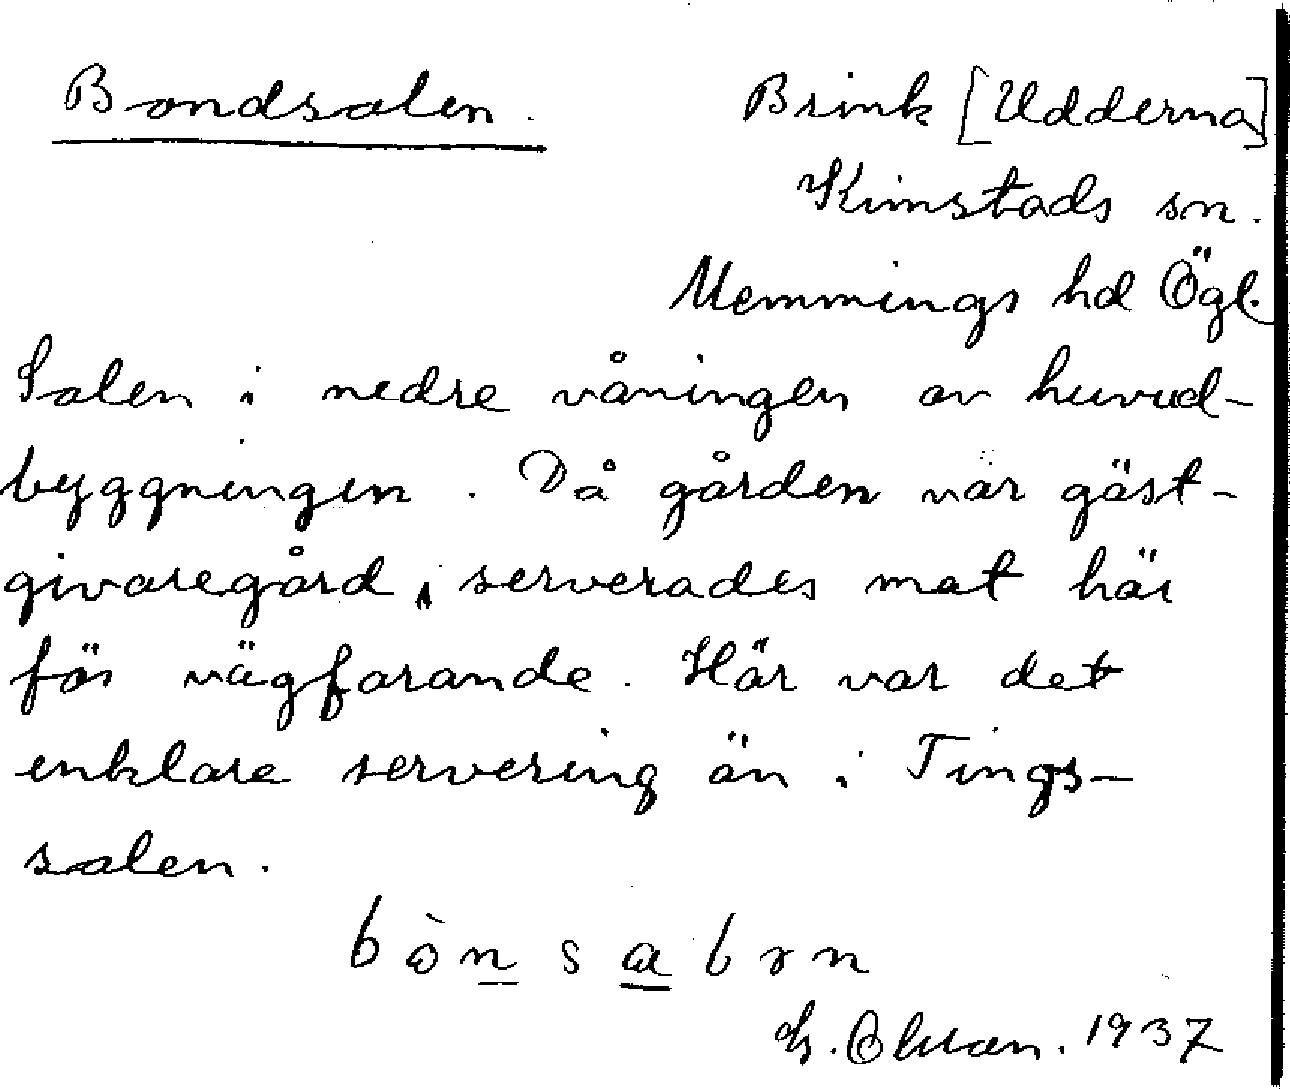 Bondsalen. Brink [Udderna]
Kimstads sn.
Memmings hd Ögl.
Salen i nedre våningen av huvud-
byggningen. Då gården var gäst-
givaregård, serverades mat här
för vägfarande. Här var det
enklare servering än i Tings-
salen.
1937